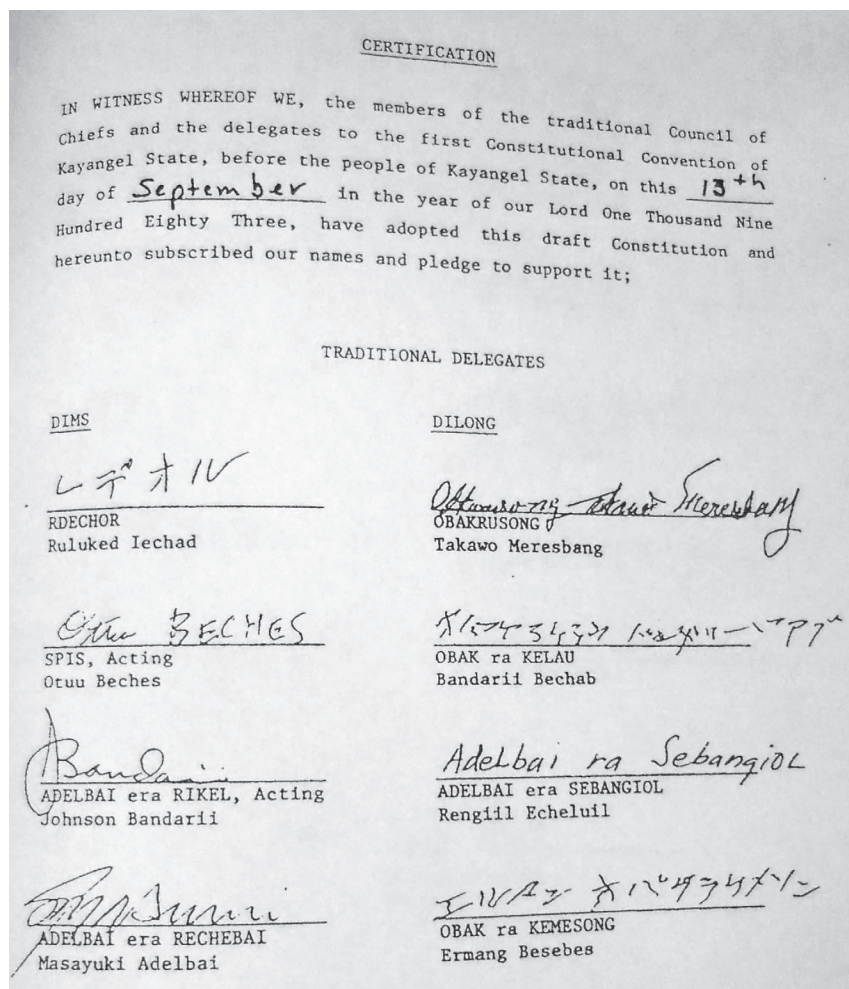 CERTIFICATION
IN WITNESS WHEREOF WE, the members of the traditional Council of
Chiefs and the delegates to the first Constitutional Convention of
Kayangel State, before the people of Kayangel State, on this 13th
day of September in the year of our Lord One Thousand Nine
Hundred Eighty Three, have adopted this draft Constitution and
hereunto subscribed our names and pledge to support it;
TRADITIONAL DELEGATES
DIMS
レデオル
RDECHOR
Ruluked Iechad
Otuu BECHES
SPIS, Acting
Otuu Beches
ADELBAI era RIKEL, Acting
Johnson Bandarii
ADELBAI era RECHEBAI
Masayuki Adelbai
DILONG
Meresbang
OBAKRUSONG
Takawo Meresbang
OBAK ra KELAU
Bandarii Bechab
Adelbai ra Sebangiol
ADELBAI era SEBANGIOL
Rengiil Echeluil
OBAK ra KEMESONG
Ermang Besebes